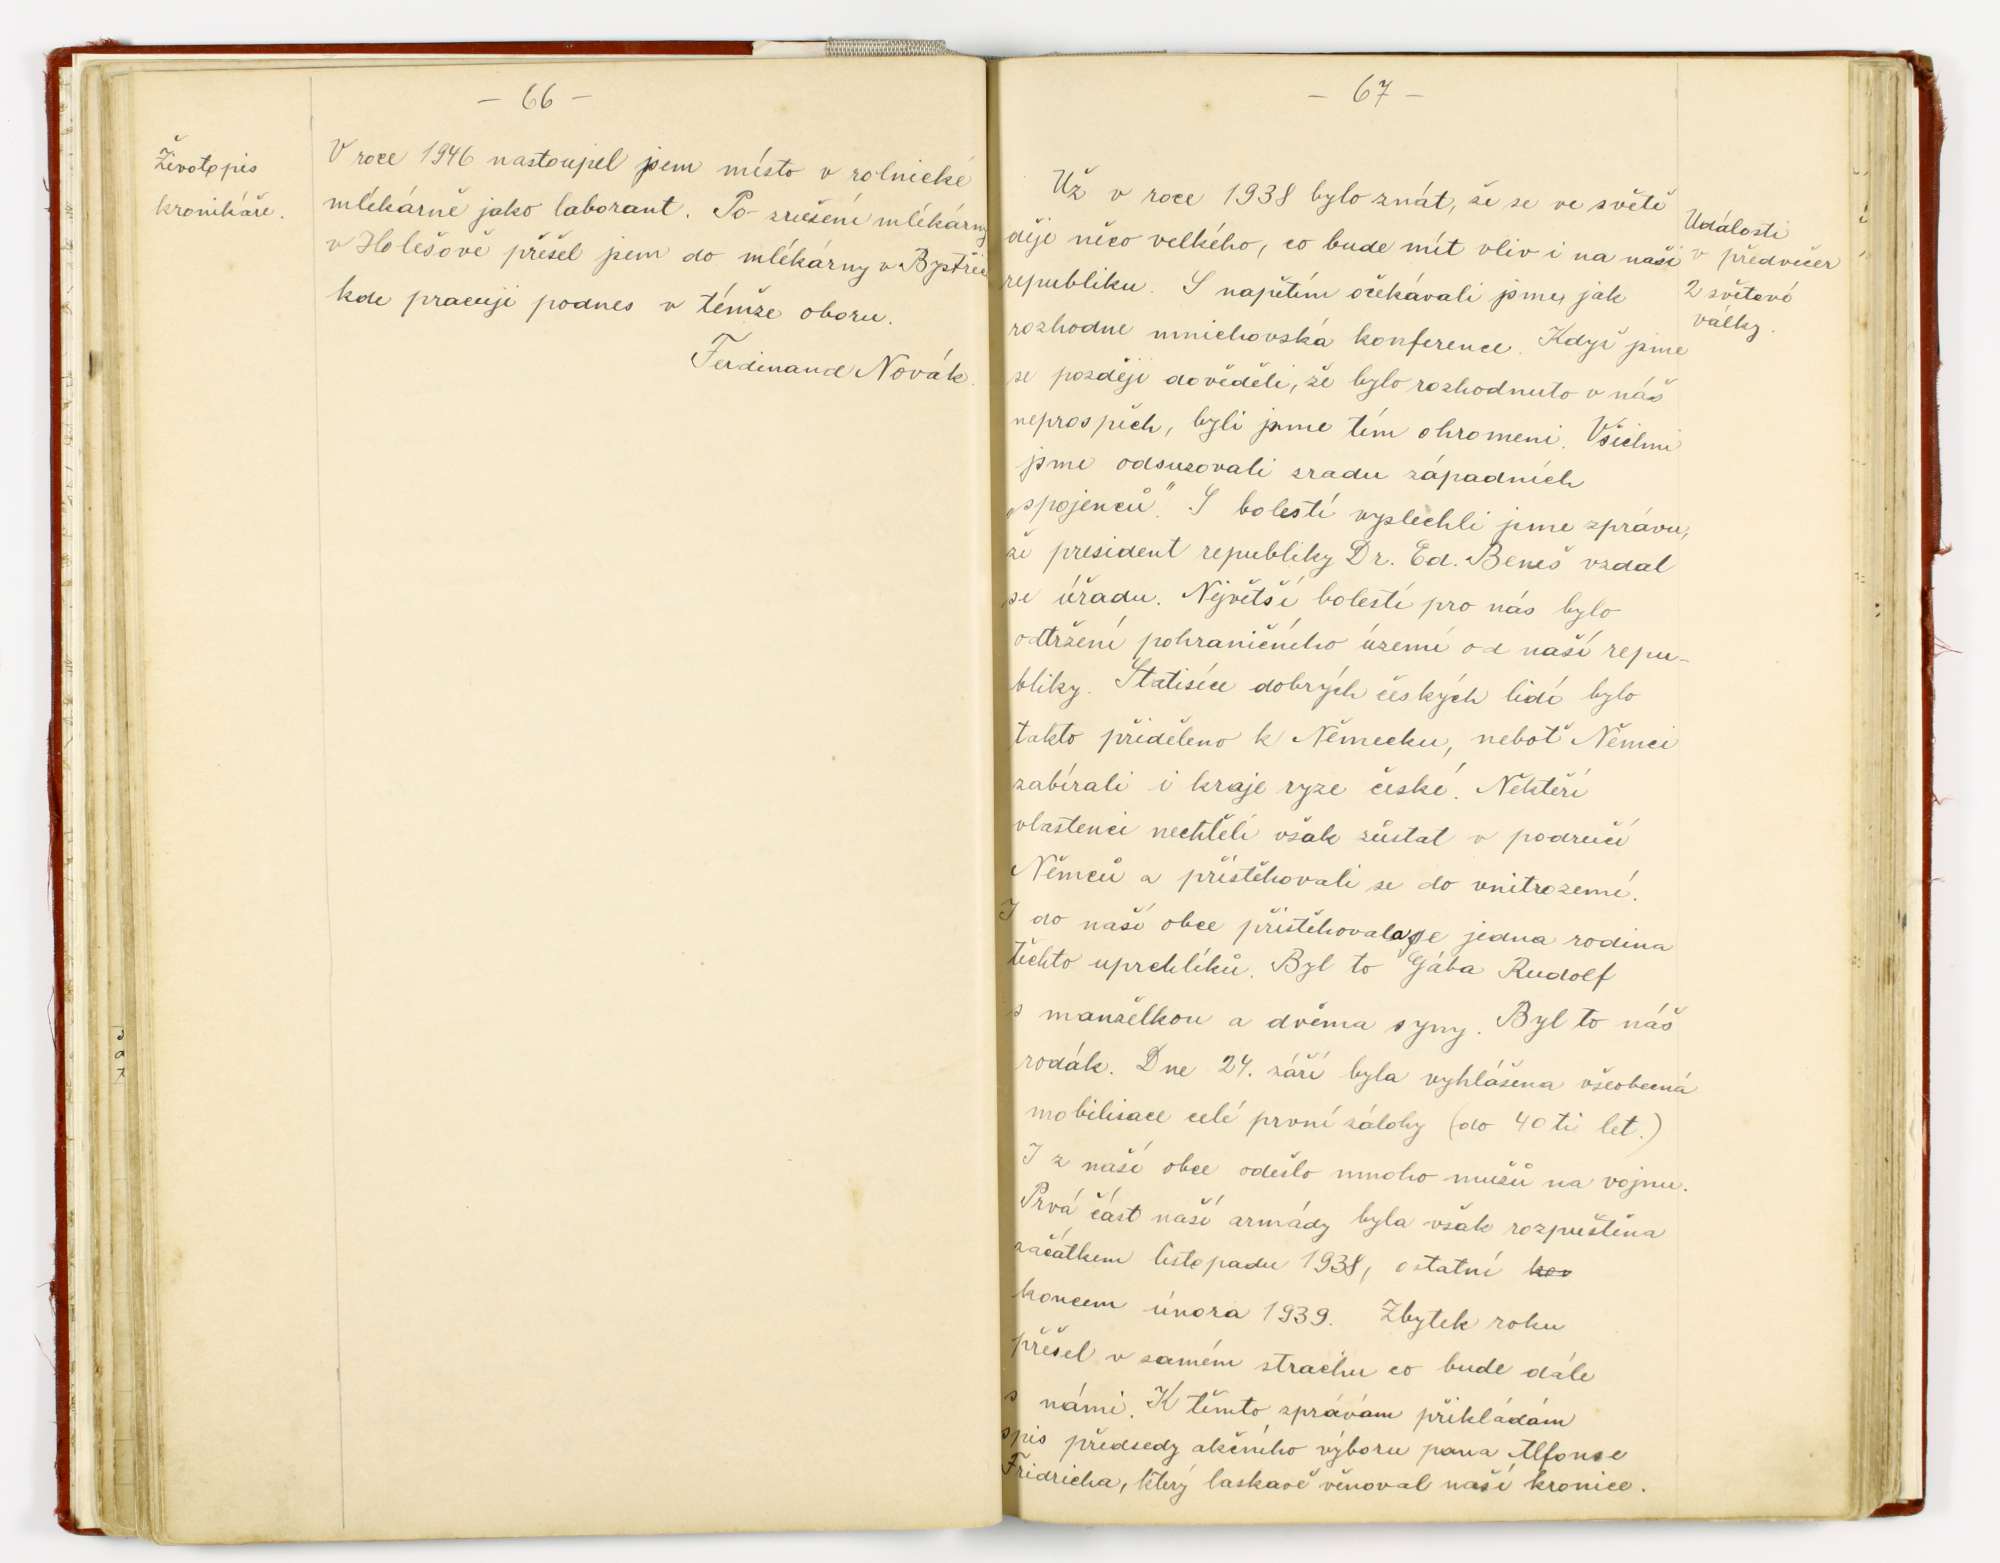 - 66 -
Životopis
kronikáře.
V roce 1946 nastoupil jsem místo v rolnické
mlékárně jako laborant. Po zrušení mlékárny
v Holešově přešel jsem do mlékárny v Bystřici
kde pracuji podnes v témže oboru.
Ferdinand Novák.
- 67 -
Události
v předvečer
2 světové
války.
Už v roce 1938 bylo znát, že se ve světě
děje něco velkého, co bude mít vliv i na naši
republiku. S napětím očekávali jsme, jak
rozhodne mnichovská konference. Když jsme
se později dověděli, že bylo rozhodnuto v náš
neprospěch, byli jsme tím ohromeni. Všichni
jsme odsuzovali zradu západních
„spojenců". S bolestí vyslechli jsme zprávu,
že president republiky Dr. Ed. Beneš vzdal
se úřadu. Největší bolestí pro nás bylo
odtržení pohraničního území od naší repu-
bliky. Statisíce dobrých českých lidí bylo
takto přiděleno k Německu, neboť Němci
zabírali i kraje ryze české. Někteří
vlastenci nechtěli však zůstat v područí
Němců a přistěhovali se do vnitrozemí.
I do naší obce přistěhovala se jedna rodina
těchto uprchlíků. Byl to Gába Rudolf
s manželkou a dvěma syny. Byl to náš
rodák. Dne 24. září byla vyhlášena všeobecná
mobilisace celé první zálohy (do 40 ti let.)
I z naší obce odešlo mnoho mužů na vojnu.
Prvá část naší armády byla však rozpuštěna
začátkem listopadu 1938, ostatní kon
koncem února 1939. Zbytek roku
přešel v samém strachu co bude dále
s námi. K těmto zprávám přikládám
spis předsedy akčního výboru pana Alfonse
Fridricha, který laskavě věnoval naší kronice.